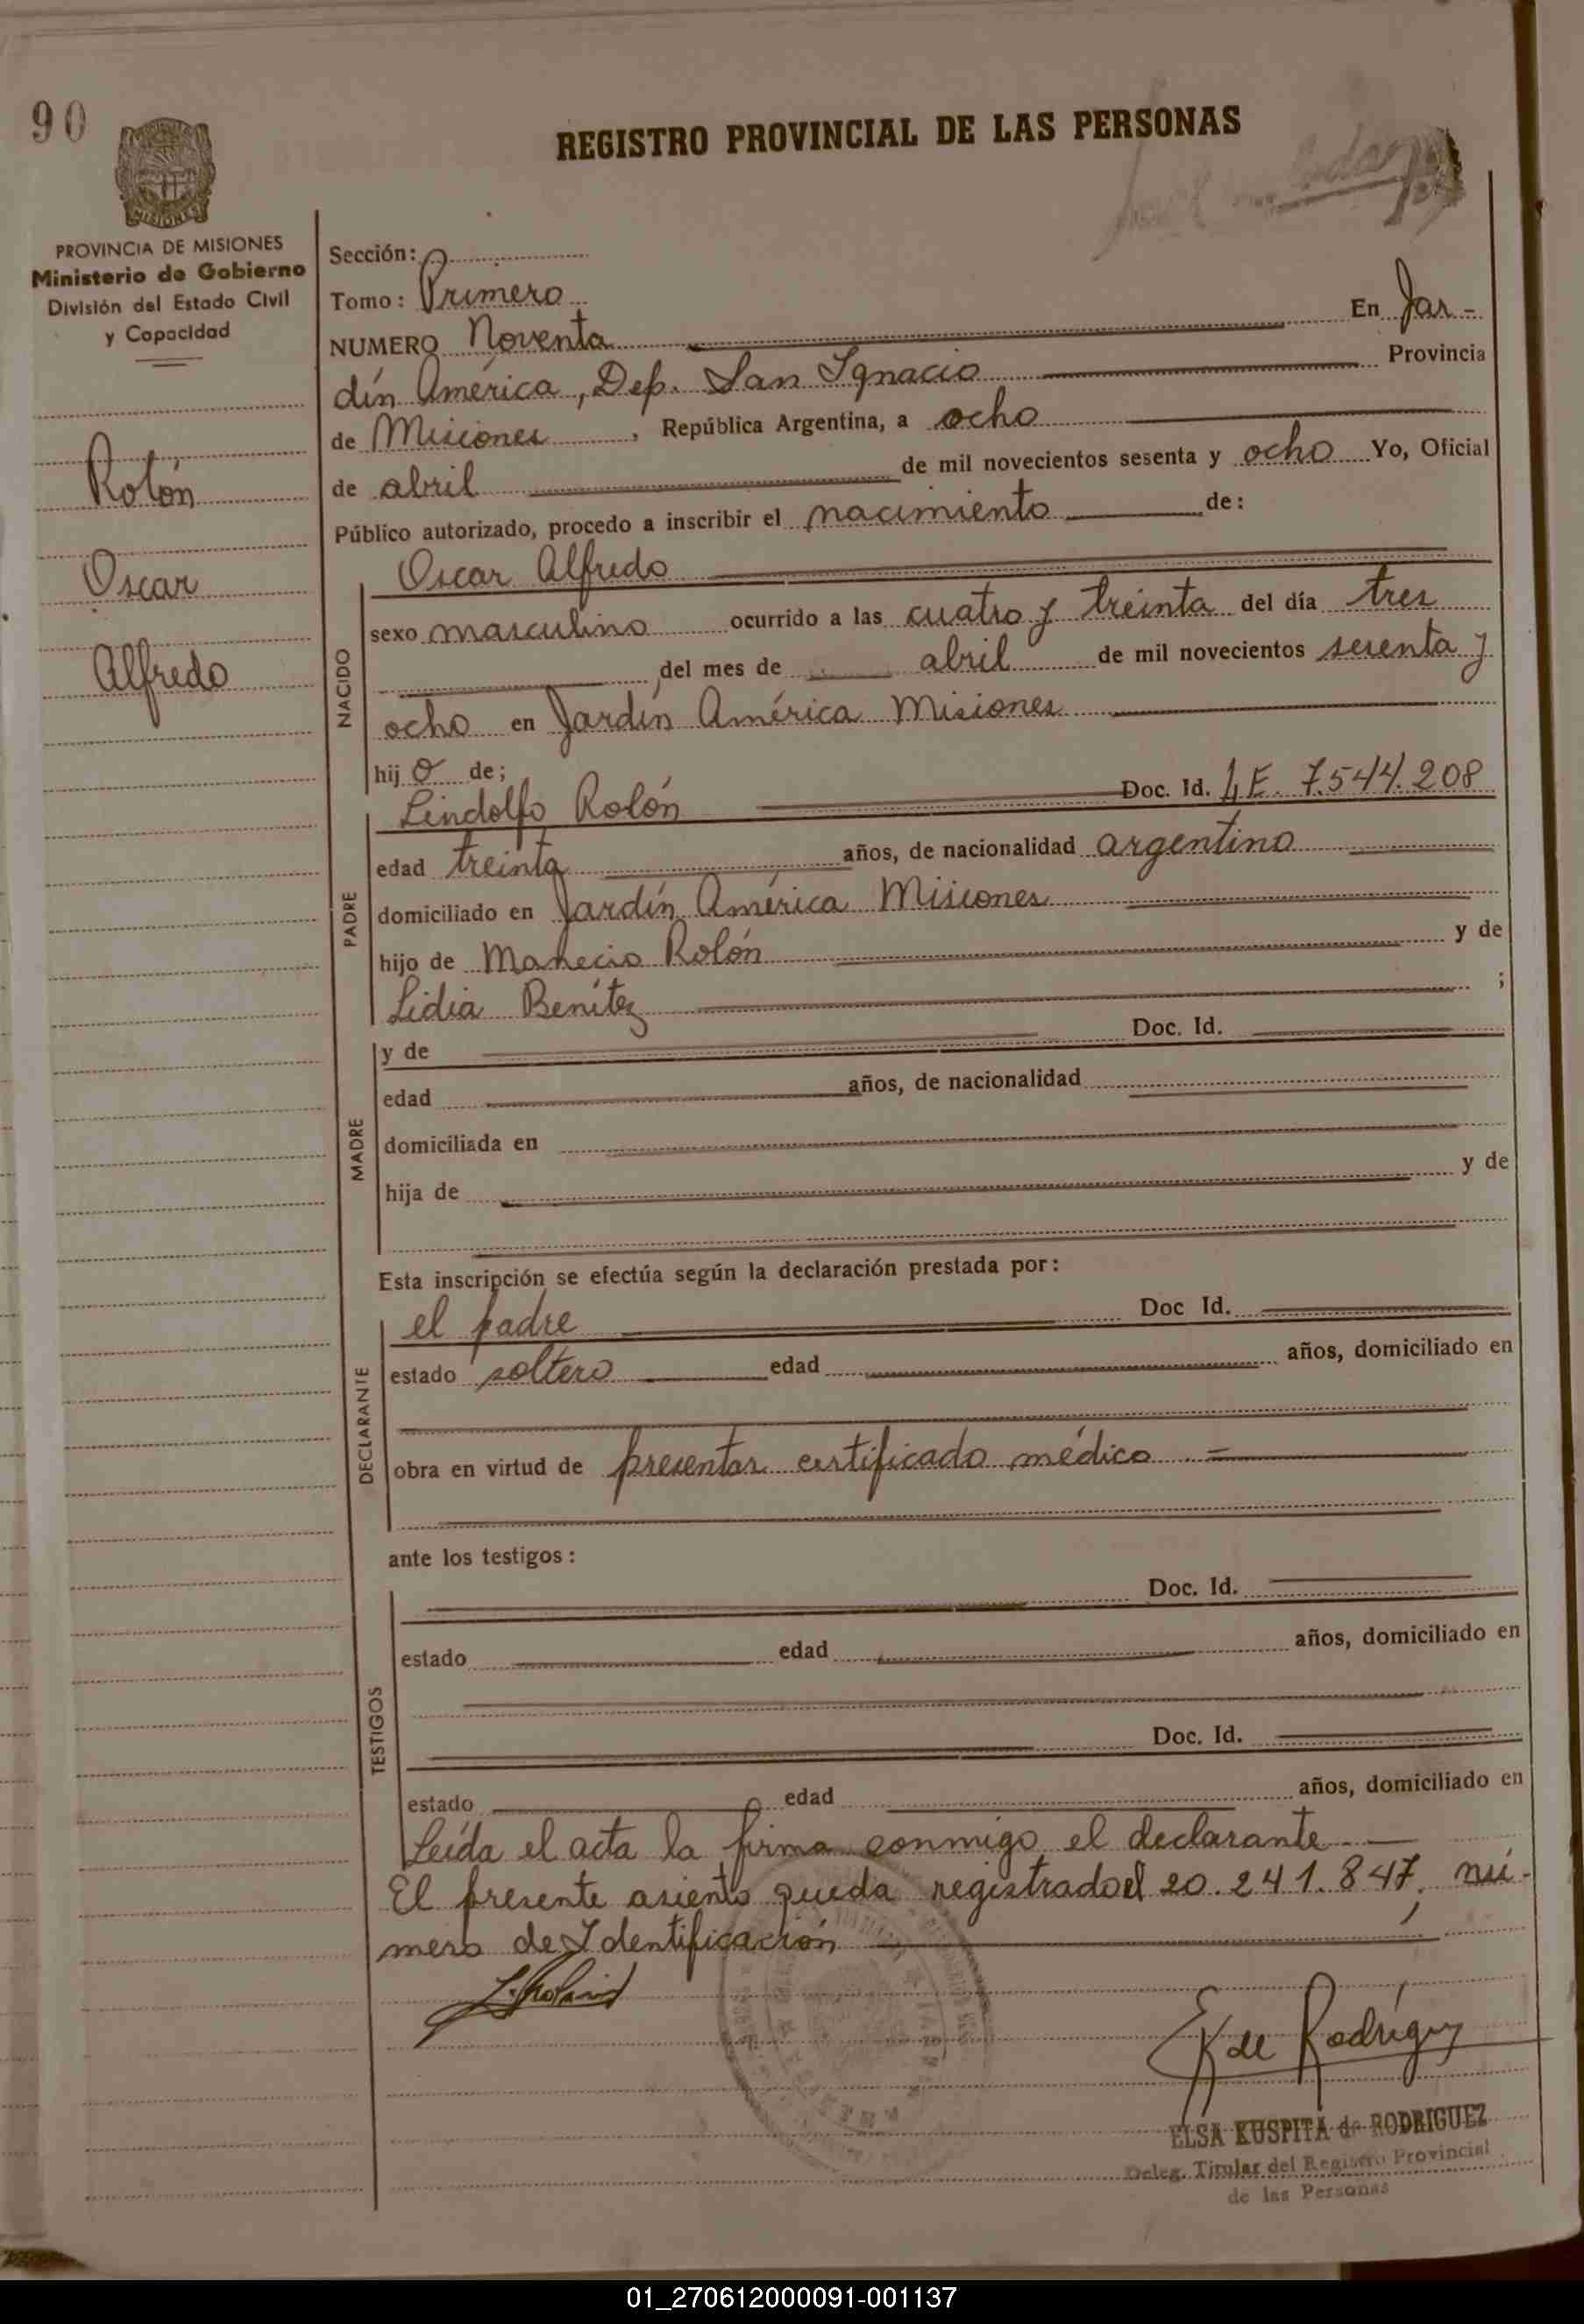 90
REGISTRO PROVINCIAL DE LAS PERSONAS
MISIONES
PROVINCIA DE MISIONES
Ministerio de Gobierno
División del Estado Civil
y Capacidad
Rolón
Oscar
Alfredo
Sección:
Tomo: Primero
NUMERO Noventa En Jar-
dín América, Dep. San Ignacio Provincia
de Misiones, República Argentina, a ocho
de abril de mil novecientos sesenta y ocho Yo, Oficial
Público autorizado, procedo a inscribir el nacimiento de:
Oscar Alfredo
NACIDO
sexo masculino ocurrido a las cuatro y treinta del día tres
del mes de abril de mil novecientos sesenta y
ocho en Jardín América Misiones
hijo de;
Lindolfo Rolón Doc. Id. L.E. 7.544.208
PADRE
edad treinta años, de nacionalidad argentino
domiciliado en Jardín América Misiones
hijo de Rolón y de
Lidia Benítez ;
MADRE
y de Doc. Id.
edad años, de nacionalidad
domiciliada en
hija de y de
Esta inscripción se efectúa según la declaración prestada por:
el padre Doc Id.
DECLARANTE
estado soltero edad años, domiciliado en
obra en virtud de presentar certificado médico.=
ante los testigos:
TESTIGOS
Doc. Id.
estado edad años, domiciliado en
Doc. Id.
estado edad años, domiciliado en
Leída el acta la firma conmigo el declarante
El presente asiento queda registrado el 20.241.847, nú-
mero de Identificación
E K de Rodríguez
ELSA KUSPITA de RODRIGUEZ
Deleg. Titular del Registro Provincial
de las Personas
01_270612000091-001137